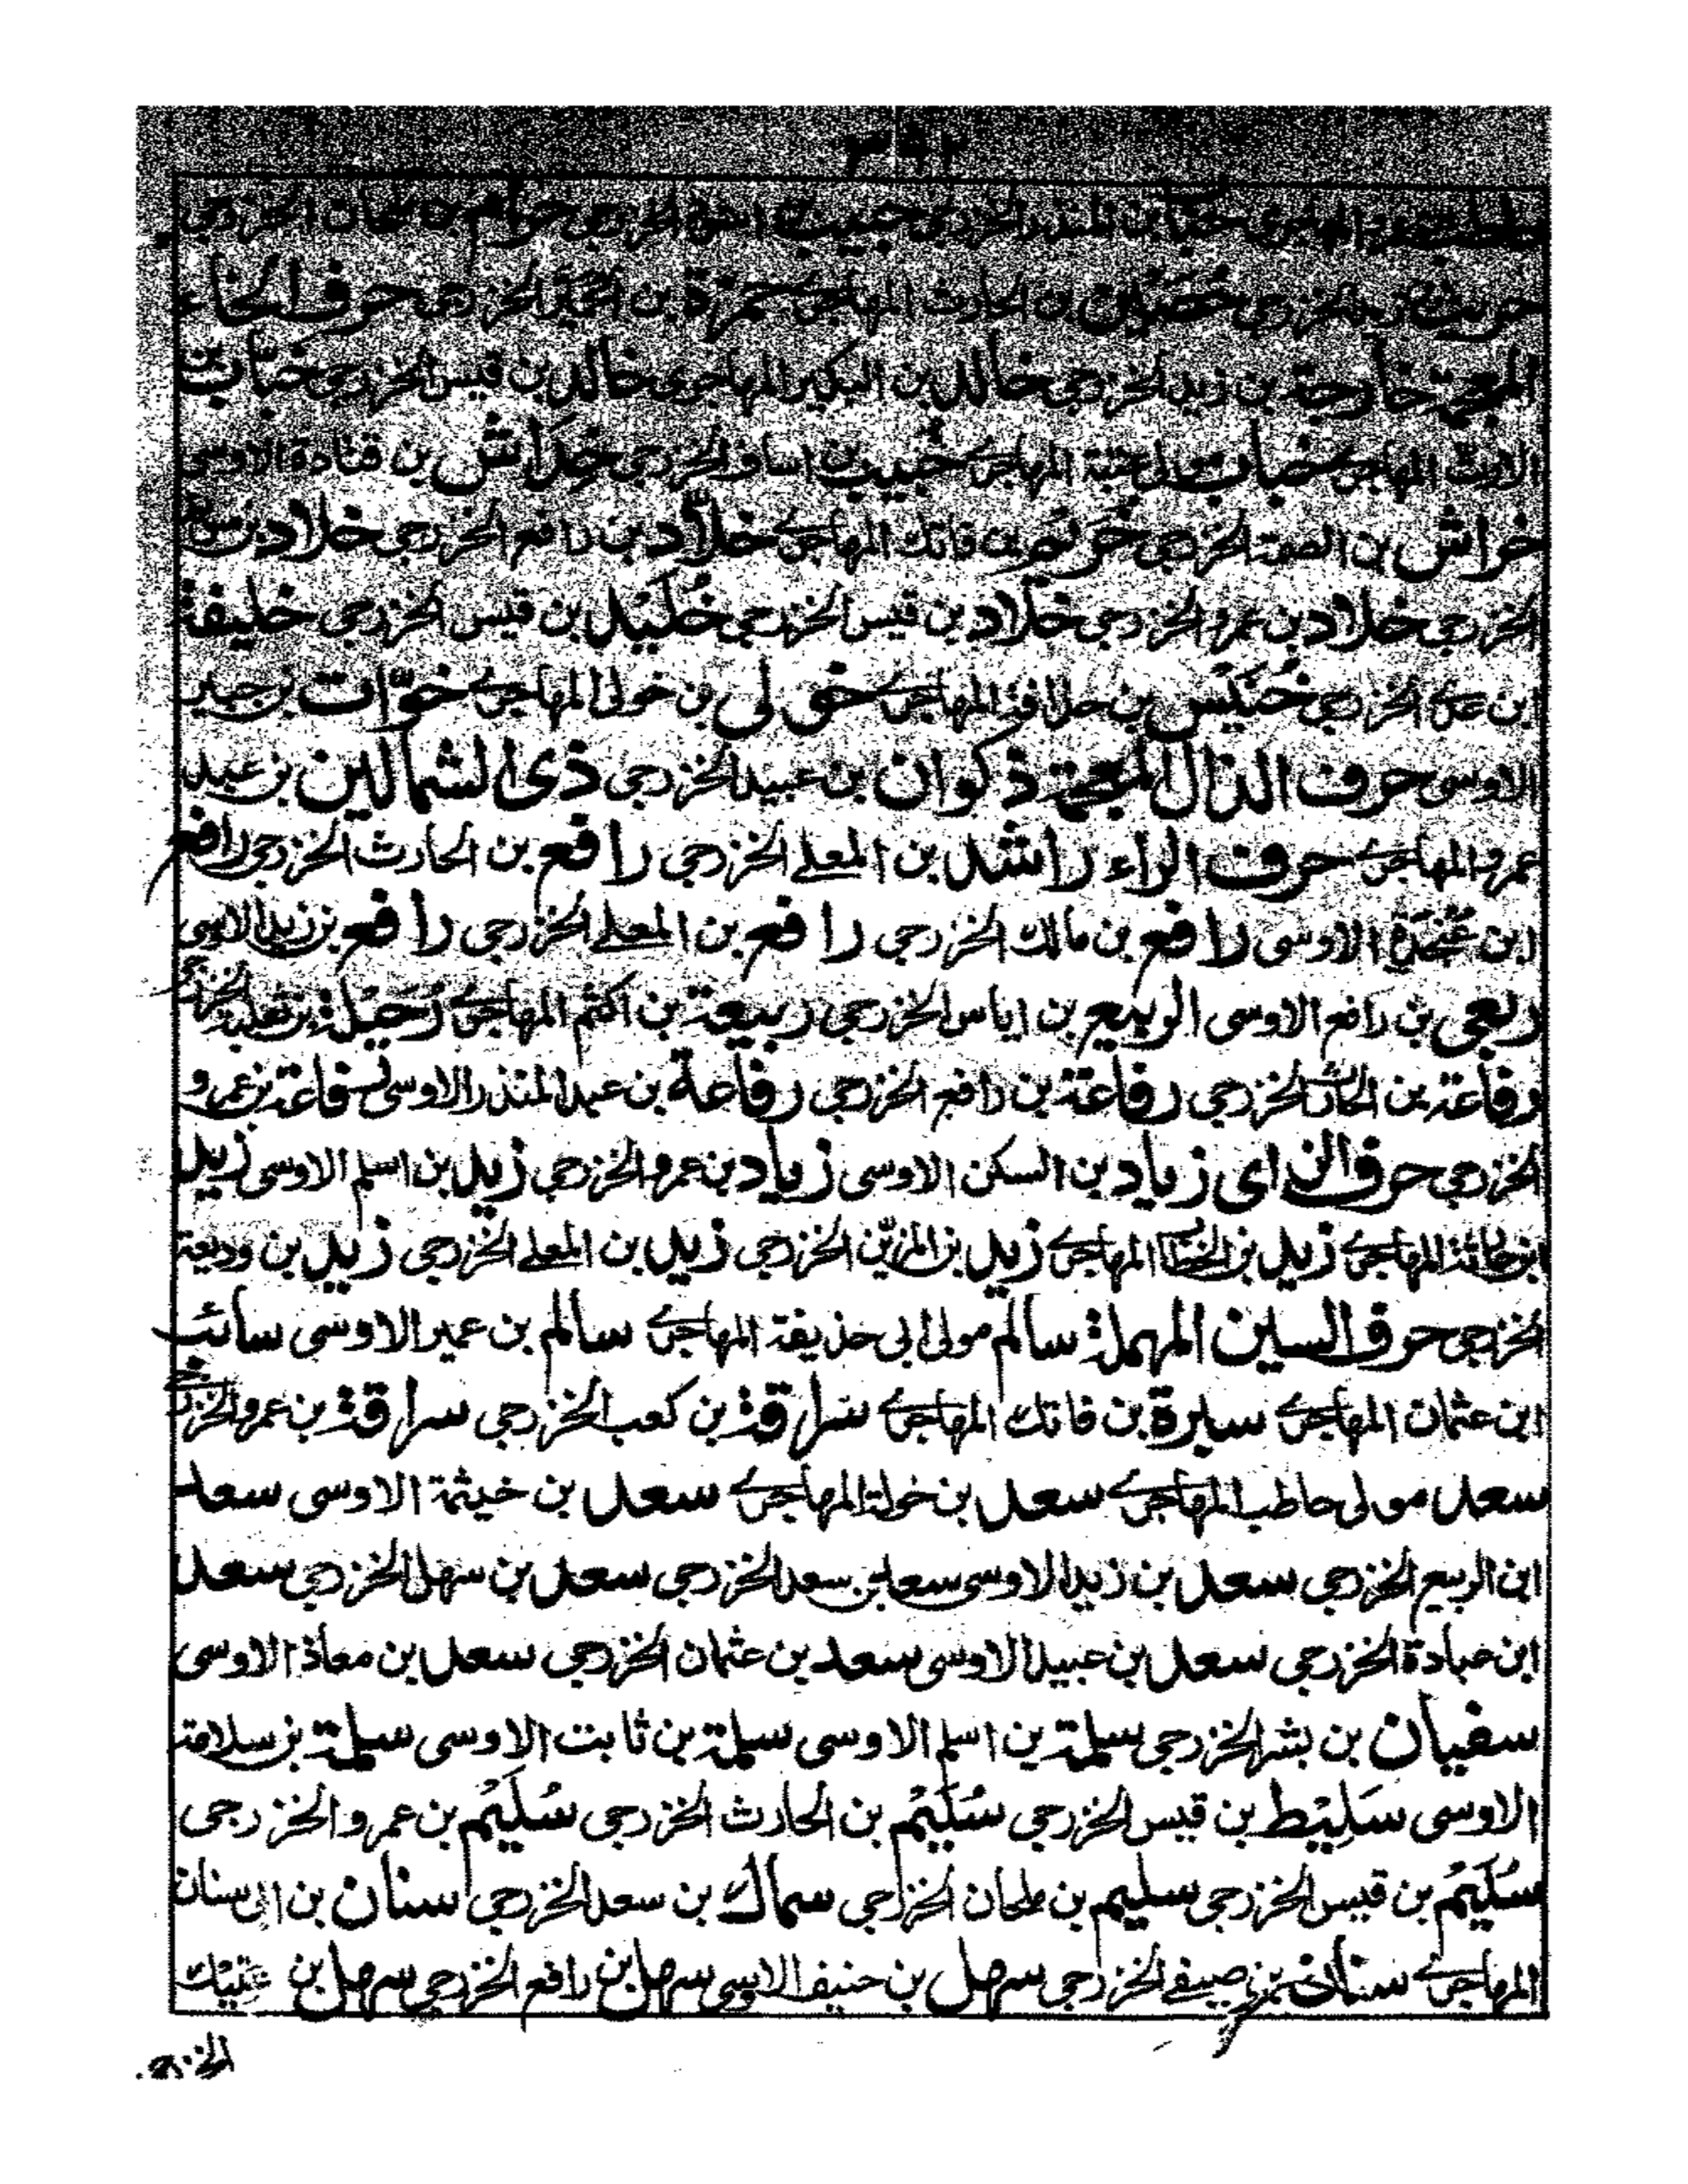 المهاجرى بن المنذر الخزرجي حبيب الخزرجي حرام بن ملحان الخزرجي
حريث بن زيد الخزرجي حصين بن الحارث المهاجرى حمزة بن الحمير الخزرجي حرف الخاء
المعجمة خارجة بن زيد الخزرجي خالد بن البكير المهاجرى خالد بن قيس الخزرجي خباب بن
الارت المهاجرى خباب مولى عتبة المهاجرى خبيب بن اساف الخزرجي خداش بن قتادة الاوسى
خراش بن الصمة الخزرجي خريم بن فاتك المهاجرى خلاد بن رافع الخزرجي خلاد بن سويد
الخزرجي خلاد بن عمرو الخزرجي خلاد بن قيس الخزرجي خليد بن قيس الخزرجي خليفة
ابن عدى الخزرجي خنيس بن حذافة المهاجرى خولى بن خولى المهاجرى خوّات بن جبير
الاوسى حرف الذال المعجمة ذكوان بن عبيد الخزرجي ذى الشمالين بن عبد
عمرو المهاجرى حرف الراء راشد بن المعلى الخزرجي رافع بن الحارث الخزرجي رافع
ابن عنجدة الاوسى رافع بن مالك الخزرجي رافع بن المعلى الخزرجي رافع بن زيد الاوسى
ربعى بن رافع الاوسى الربيع بن اياس الخزرجي ربيعة بن اكثم المهاجرى رخيلة بن ثعلبة الخزرجي
رفاعة بن الحارث الخزرجي رفاعة بن رافع الخزرجي رفاعة بن عبد المنذر الاوسى رفاعة بن عمرو
الخزرجي حرف الزاى زياد بن السكن الاوسى زياد بن عمرو الخزرجي زيد بن اسلم الاوسى زيد
ابن حارثة المهاجرى زيد بن الخطاب المهاجرى زيد بن المزيّن الخزرجي زيد بن المعلى الخزرجي زيد بن وديعة
الخزرجي حرف السين المهملة سالم مولى ابى حذيفة المهاجرى سالم بن عمير الاوسى سائب
ابن عثمان المهاجرى سبرة بن فاتك المهاجرى سراقة بن كعب الخزرجي سراقة بن عمرو الخزرجي
سعد مولى حاطب المهاجرى سعد بن خولة المهاجرى سعد بن خيثمة الاوسى سعد
ابن الربيع الخزرجي سعد بن زيد الاوسى سعد بن سعد الخزرجي سعد بن سهل الخزرجي سعد
ابن عبادة الخزرجي سعد بن عبيد الاوسى سعد بن عثمان الخزرجي سعد بن معاذ الاوسى
سفيان بن بشر الخزرجي سلمة بن اسلم الاوسى سلمة بن ثابت الاوسى سلمة بن سلامة
الاوسى سَلِيْط بن قيس الخزرجي سُلَيْم بن الحارث الخزرجي سُلَيْم بن عمرو الخزرجي
سُلَيْم بن قيس الخزرجي سليم بن ملحان الخزرجي سماك بن سعد الخزرجي سنان بن ابى سنان
المهاجرى سنان بن صيفى الخزرجي سهل بن حنيف الاوسى سهل بن رافع الخزرجي سهل بن عتيك
الخزرجي